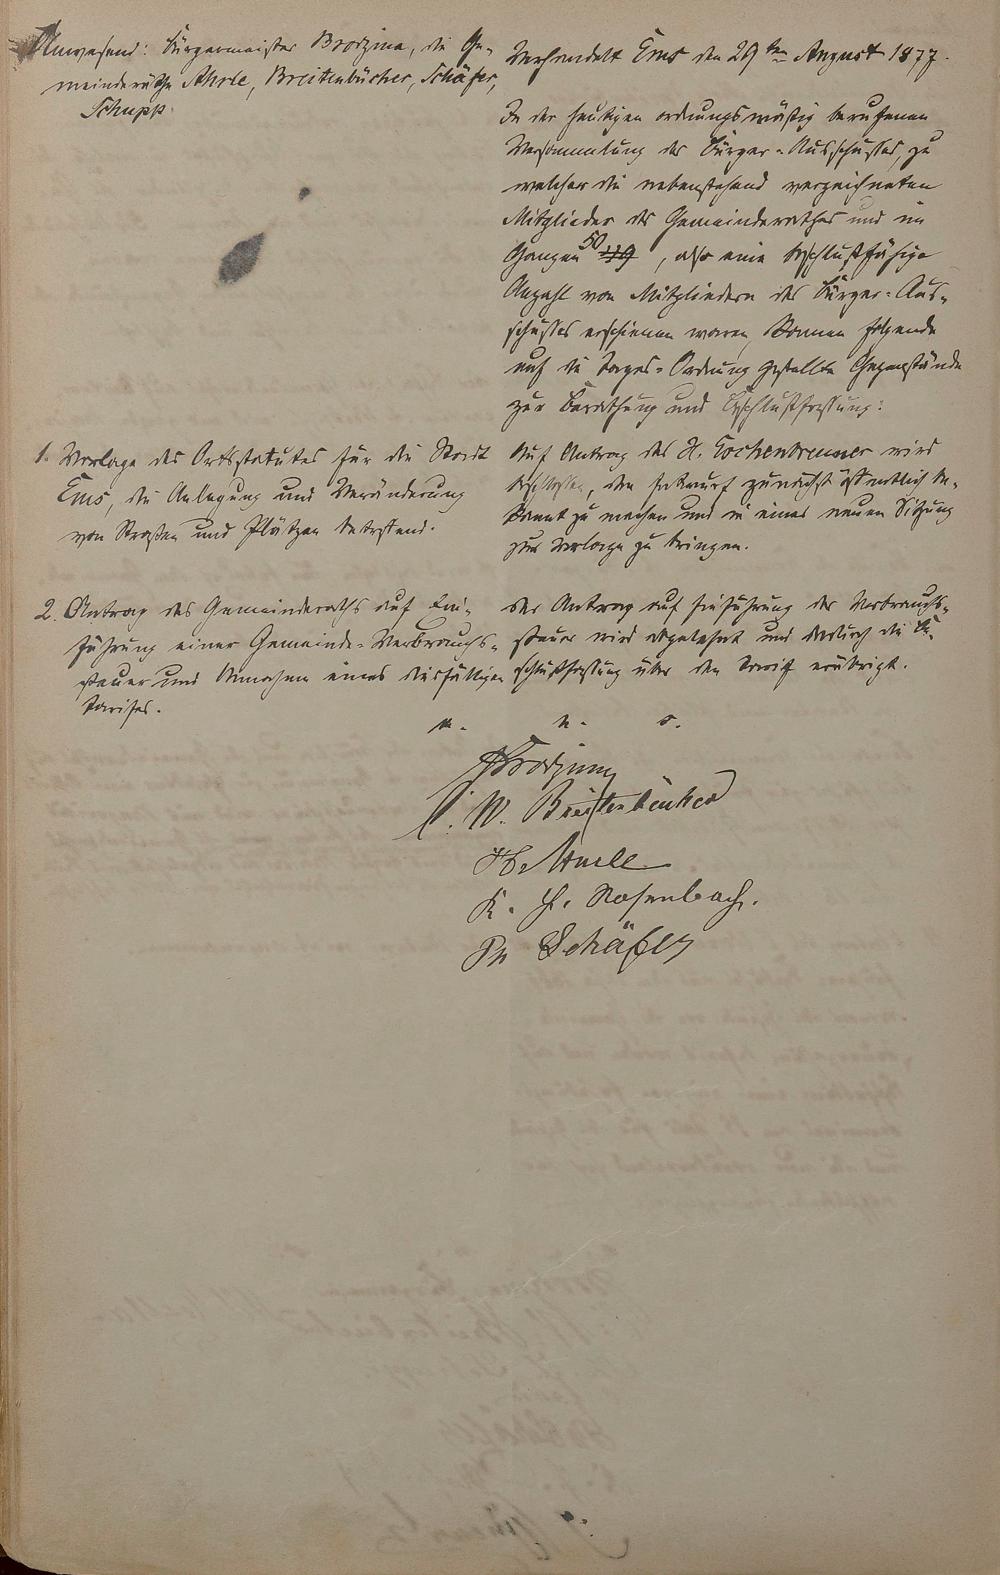 Anwesend: Bürgermeister Brodzina, die Ge-
meinderäthe Ahrle, Breitenbücher, Schäfer,
Schupp.
Verhandelt Ems den 29ten August 1877.
In der heutigen ordnungsmäßig berufenen
Versammlung des Bürger-Ausschusses, zu
welcher die nebenstehend verzeichneten
Mitglieder des Gemeinderathes und im
Ganzen 50, also eine beschlußfähige
Anzahl von Mitgliedern des Bürger-Aus-
schusses erschienen waren, kamen folgende
auf die Tages-Ordnung gestellte Gegenstände
zur Berathung und Beschlußfassung:
1. Vorlage des Ortsstatutes für die Stadt
Ems, die Anlegung und Veränderung
von Straßen und Plätzen betreffend.
Auf Antrag des H. Tochenbrunner wird
beschlossen, den Entwurf zunächst öffentlich be-
kannt zu machen und in einer neuen Sitzung
zur Vorlage zu bringen.
2. Antrag des Gemeinderaths auf Ein-
führung einer Gemeinde-Verbrauchs-
steuer und Annahme eines diesfälligen
Tarifes.
Der Antrag auf Einführung der Verbrauchs-
steuer wird abgelehnt und dadurch die Be-
schlußfassung über den Tarif erübrigt.
v. u.
Brodzina
W. Breitenbücher
Ahrle
K. H. Rosenbach.
Ph Schäfer